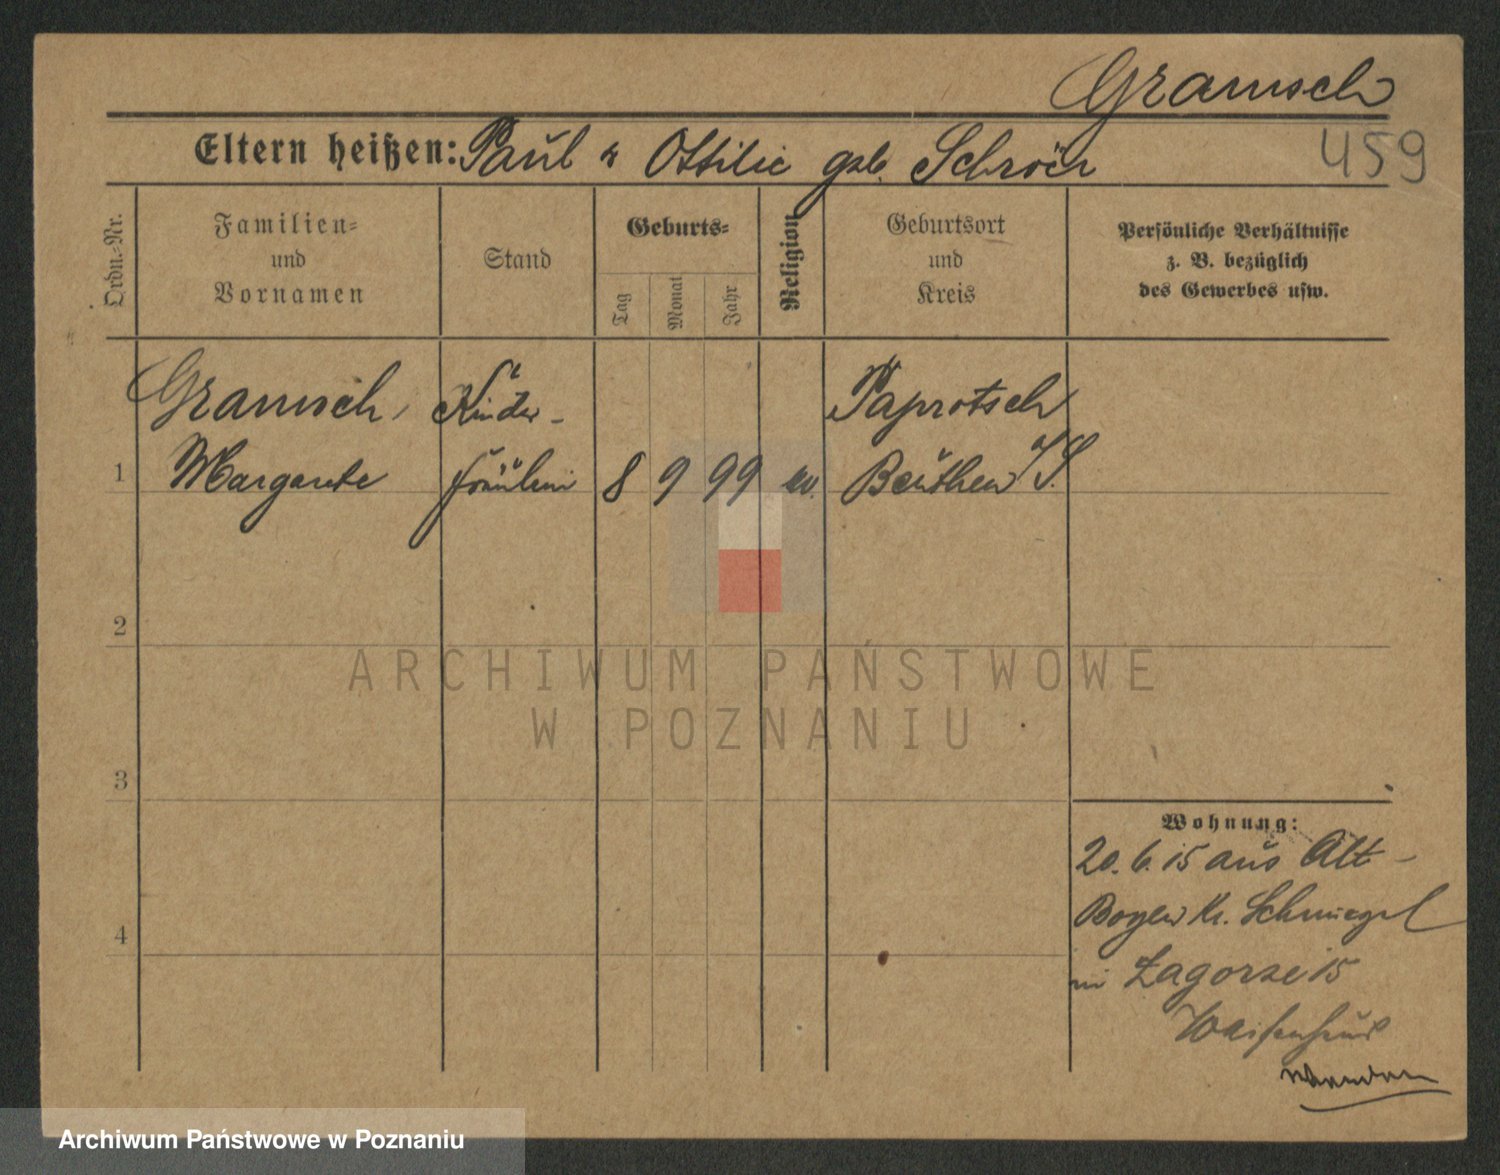 Gramsch
459
Eltern heißen: Paul u Ottilie geb. Schrör
Ordn.-Nr.
Familien-
und
Vornamen
Stand
Geburts-
Tag
Monat
Jahr
Religion
Geburtsort
und
Kreis
Persönliche Verhältnisse
z. B. bezüglich
des Gewerbes usw.
Gramsch, Kinder- Paprotsch
1 Margarete fräulein 8 9 99 ev. Beuthen
2
3
4
Wohnung:
20.6.15 aus Alt-
Boyen Kr. Schmiegel
in Zagorze 15
Waisenhaus
ARCHIWUM PAŃSTWOWE
W POZNANIU
Archiwum Państwowe w Poznaniu